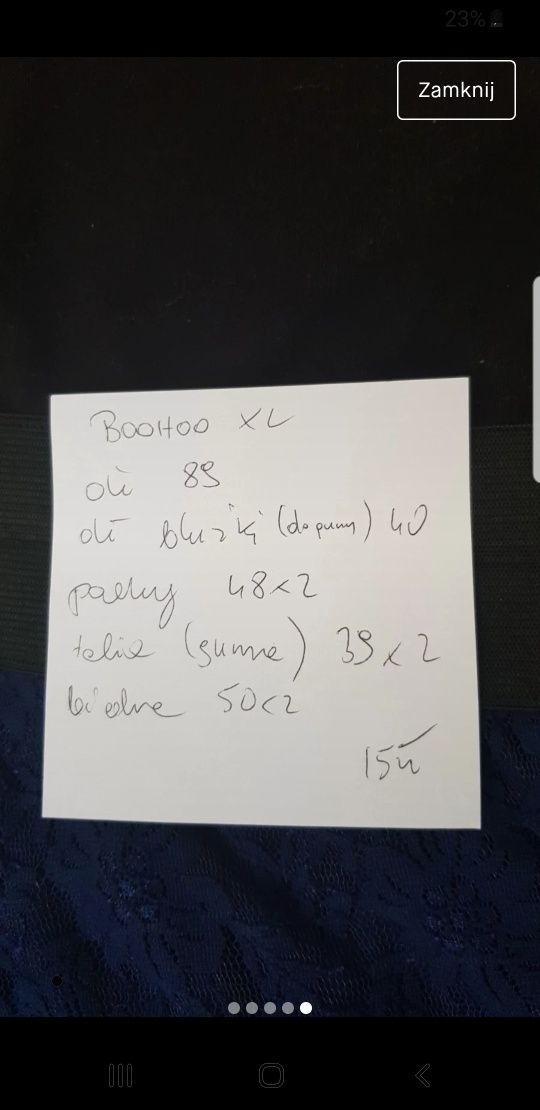 23%
Zamknij
BOOHOO XL
dł 89
dł bluzki (do gumy) 40
pachy 48x2
talia (guma) 39x2
biodra 50x2
15zł